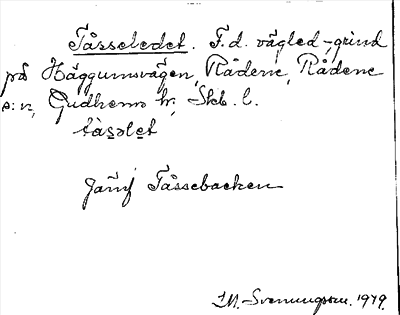 Tåsseledet. F.d. vägled -grind
på Häggumsvägen, Rådene, Rådene
s:n, Gudhems hr, Skb. l.
tàsəlet
Jämf Tåssebacken
I.M. Svenungsson. 1979.